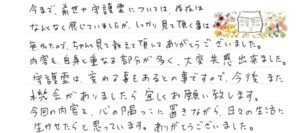 今まで 前世や守護霊については、存在は
なんとなく感じていましたが、しっかり見て頂く事は
無かったので、ちゃんと見て教えて頂いて ありがとうございました。
内容も、自身と重なる部分が多く、大変共感出来ました。
守護霊は、変わる事もあるとの事ですので、今後また
機会がありましたら 宜しくお願い致します。
今回の内容を、心の隅っこに置きながら、日々の生活に
生かせたらと思っています。ありがとうございました。